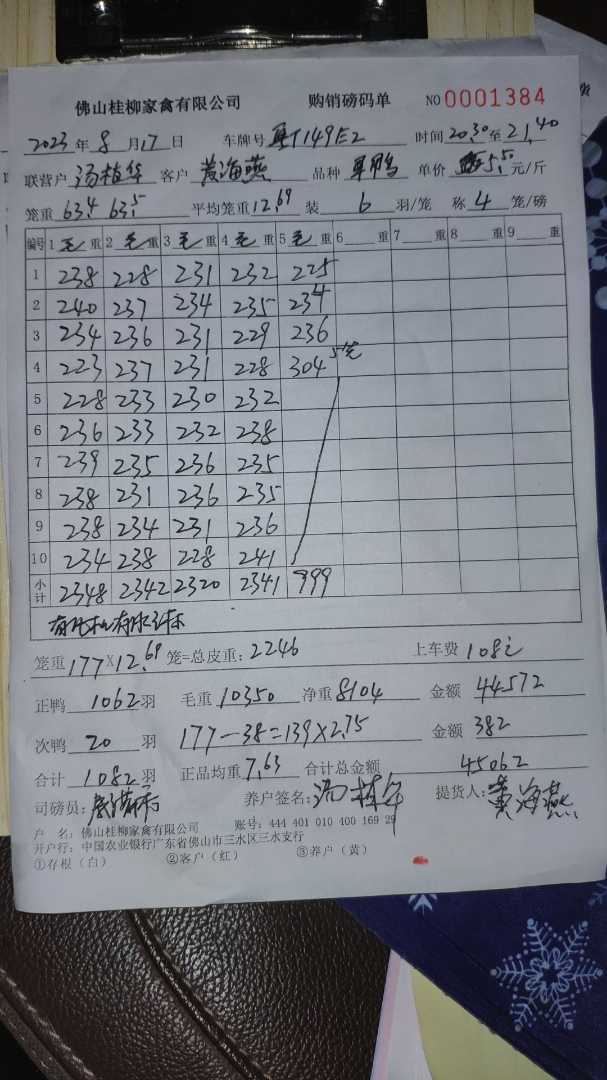 佛山桂柳家禽有限公司 购销磅码单 NO 0001384
2023 年 8 月 17 日 车牌号 粤T149E2 时间 20:30 至 21:40
联营户 汤植华 客户 黄海燕 品种 单价 5.50 元/斤
笼重 63.4 63.5 平均笼重 12.69 装 6 羽/笼 称 4 笼/磅
编号 1 毛 重 2 毛 重 3 毛 重 4 毛 重 5 毛 重 6 重 7 重 8 重 9 重
1 238 228 231 232 225
2 240 237 234 235 234
3 234 236 231 229 236
4 223 237 231 228 304 5笼
5 228 233 230 232
6 236 233 232 238
7 239 235 236 235
8 238 231 236 235
9 238 234 231 236
10 234 238 228 241
小计 2348 2342 2320 2341 999
笼重 177 X 12.69 笼=总皮重: 2246 上车费 108
正鸭 1062 羽 毛重 10350 净重 8104 金额 44572
次鸭 20 羽 177-38=139×2.75 金额 382
合计 1082 羽 正品均重 7.63 合计总金额 45062
司磅员: 养户签名: 汤植华 提货人: 黄海燕
户 名: 佛山桂柳家禽有限公司 账号: 444 401 010 400 169 29
开户行: 中国农业银行广东省佛山市三水区三水支行
①存根（白） ②客户（红） ③养户（黄）